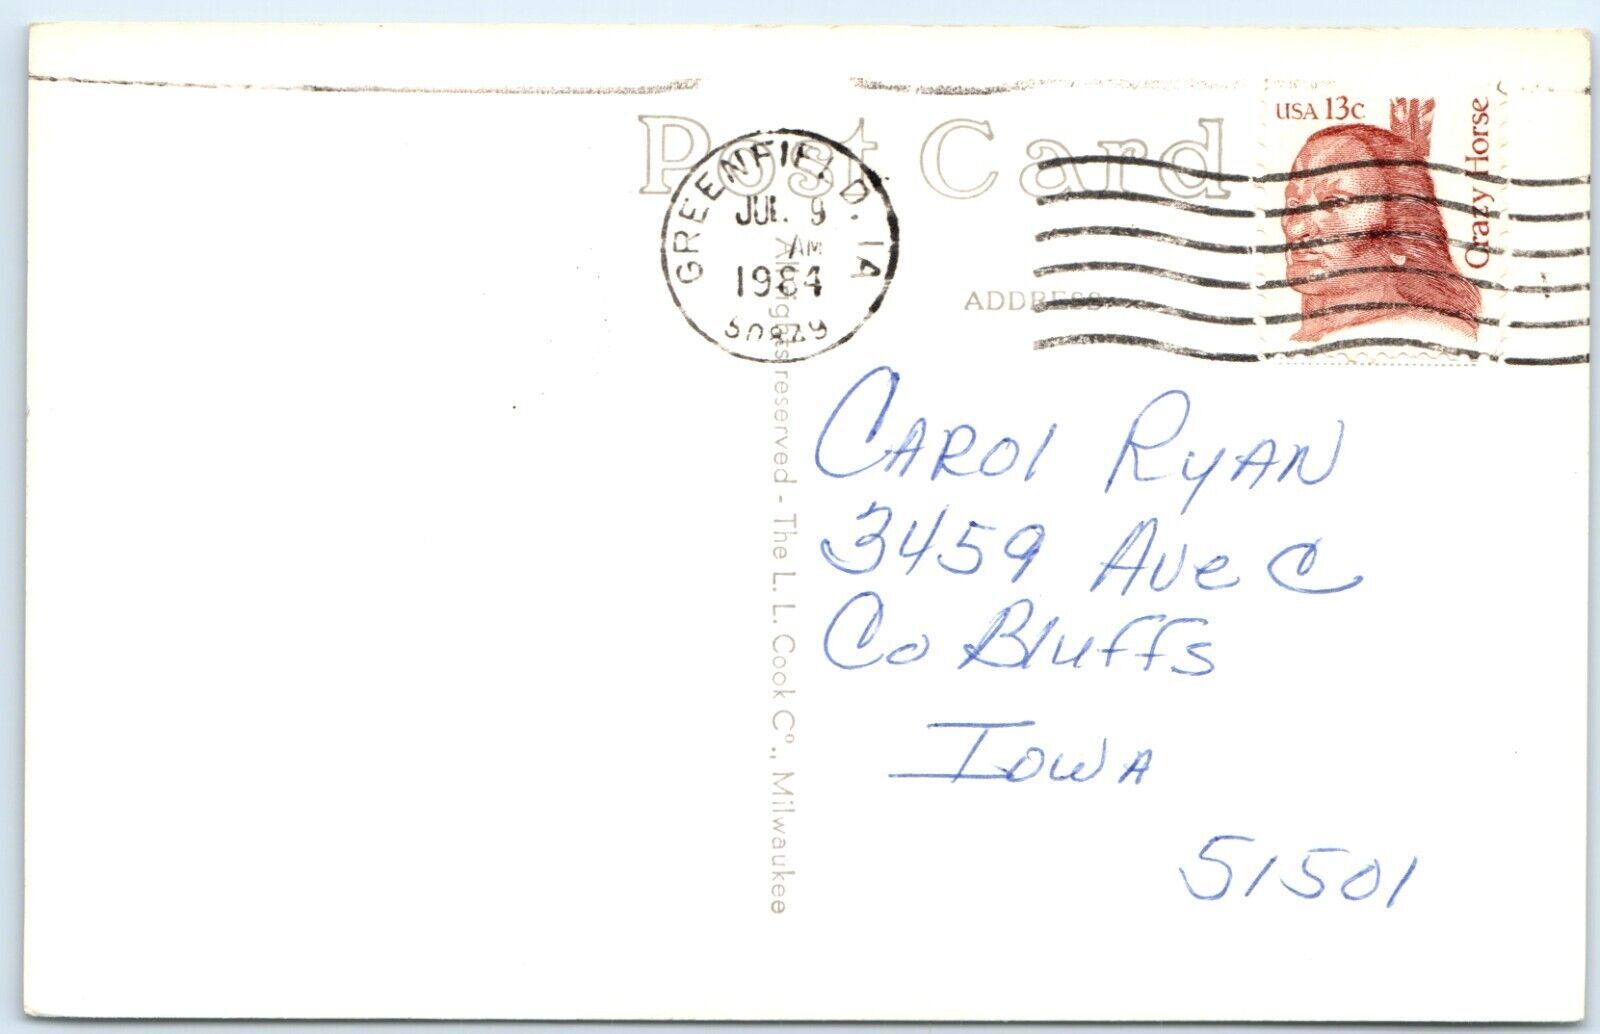 Post Card
USA 13c
Crazy Horse
GREENFIELD. IA
JUL 9
AM
1984
ADDRESS
All rights reserved - The L. L. Cook Co., Milwaukee
Carol Ryan
3459 Ave C
Co Bluffs
Iowa
51501